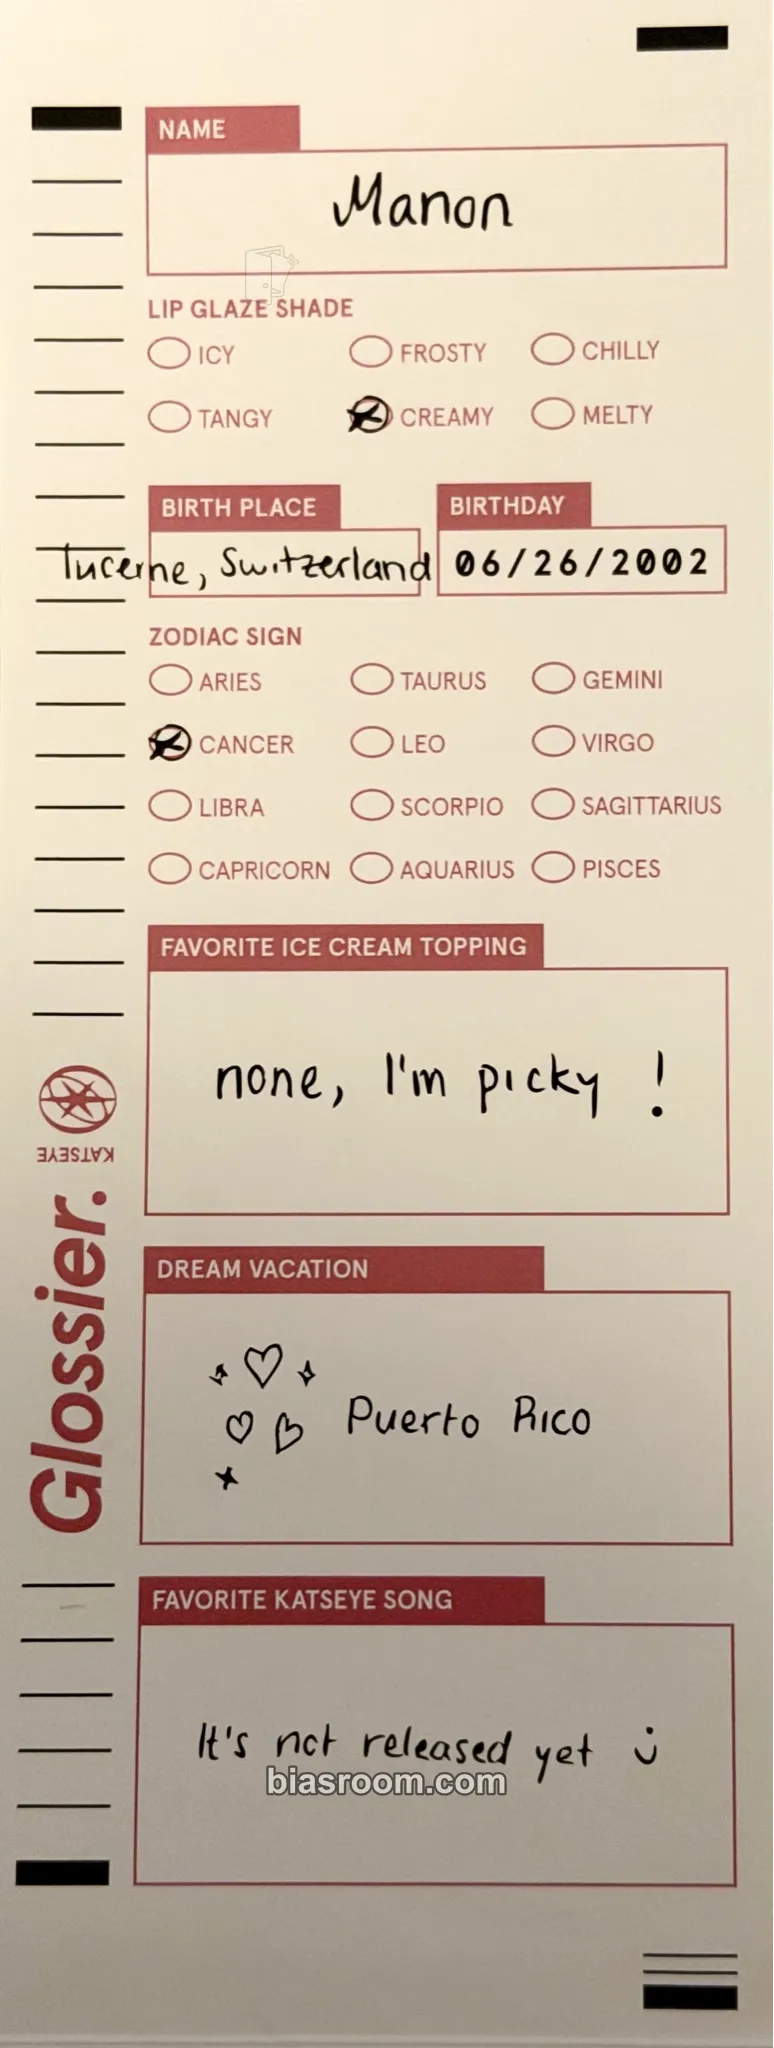 NAME
Manon
LIP GLAZE SHADE
ICY FROSTY CHILLY
TANGY CREAMY MELTY
BIRTH PLACE BIRTHDAY
lucerne, Switzerland 06/26/2002
ZODIAC SIGN
ARIES TAURUS GEMINI
CANCER LEO VIRGO
LIBRA SCORPIO SAGITTARIUS
CAPRICORN AQUARIUS PISCES
FAVORITE ICE CREAM TOPPING
none, I'm picky !
KATSEYE
Glossier.
DREAM VACATION
Puerto Rico
FAVORITE KATSEYE SONG
It's not released yet
biasroom.com